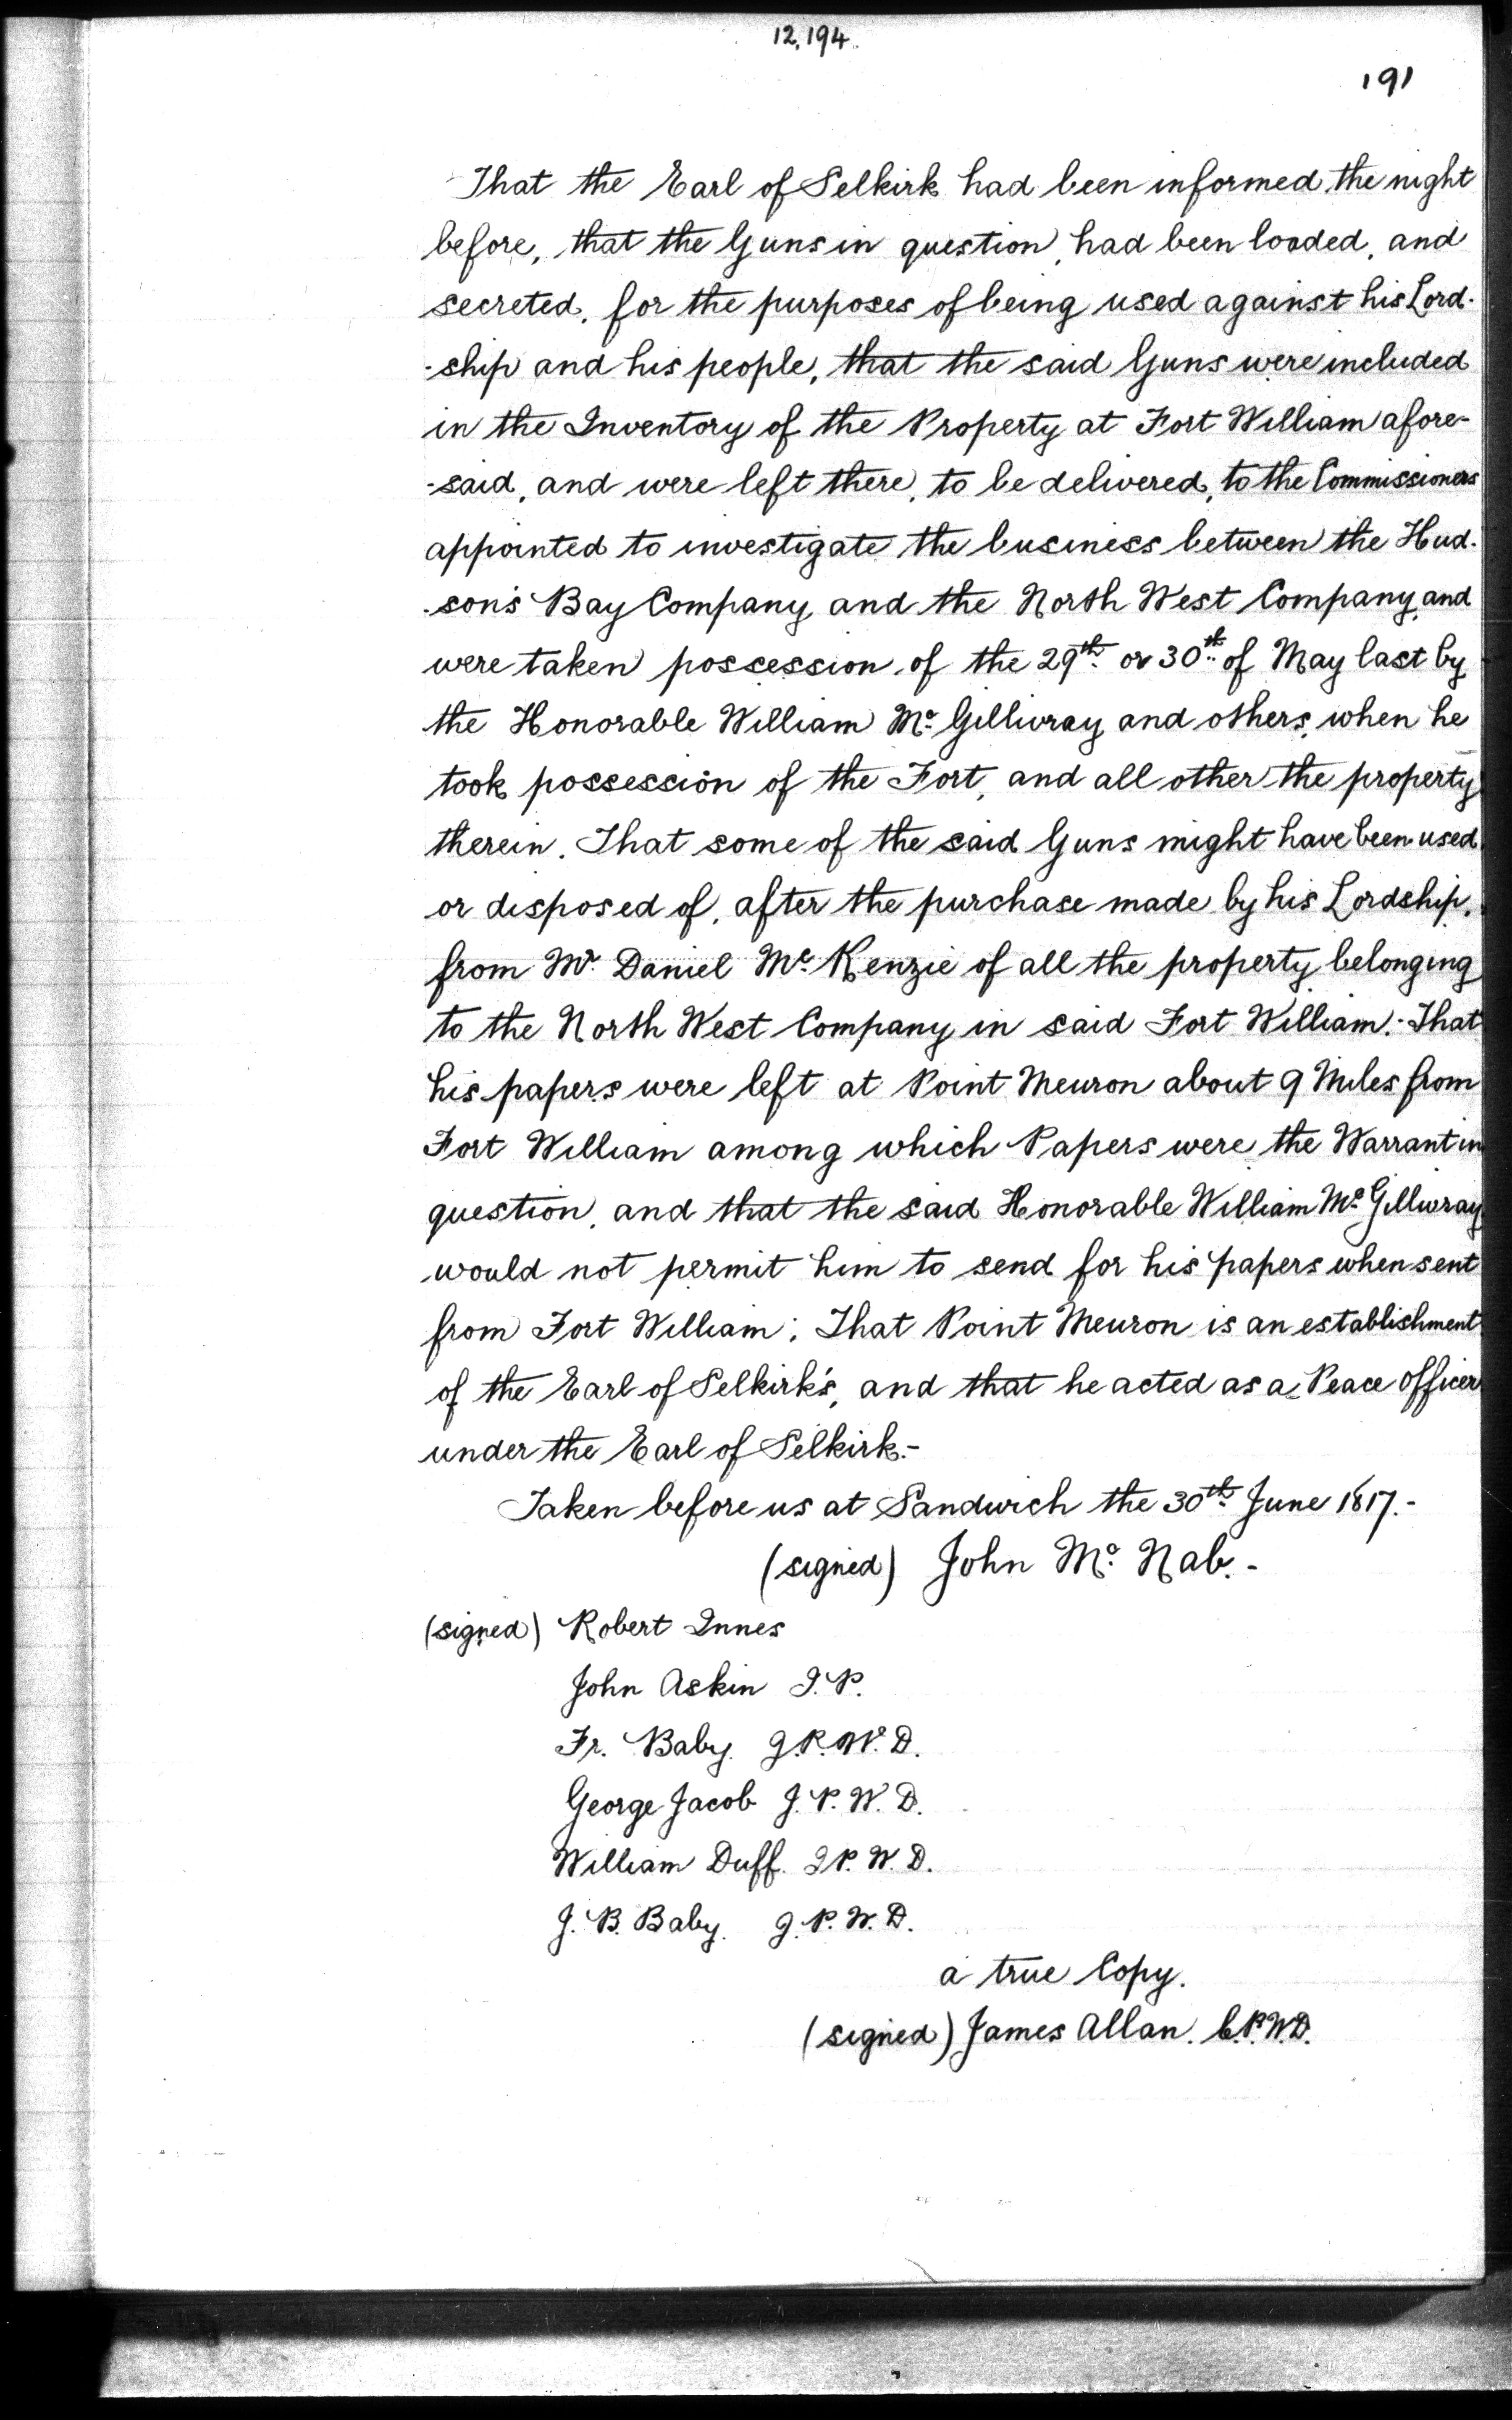 12,194.
191
That the Earl of Selkirk had been informed, the night
before, that the Guns in question, had been loaded, and
secreted, for the purposes of being used against his Lord-
-ship and his people, that the said Guns were included
in the Inventory of the Property at Fort William afore-
-said, and were left there, to be delivered, to the Commissioners
appointed to investigate the business between the Hud-
-son's Bay Company and the North West Company, and
were taken possession of the 29th. or 30th. of May last by
the Honorable William Mc. Gillivray and others, when he
took possession of the Fort, and all other the property
therein. That some of the said Guns might have been used
or disposed of, after the purchase made by his Lordship,
from Mr. Daniel Mc. Kenzie of all the property belonging
to the North West Company in said Fort William.- That
his papers were left at Point Meuron about 9 Miles from
Fort William among which Papers were the Warrant in
question, and that the said Honorable William Mc. Gillivray
would not permit him to send for his papers when sent
from Fort William; That Point Meuron is an establishment
of the Earl of Selkirk's, and that he acted as a Peace officer
under the Earl of Selkirk.-
Taken before us at Sandwich the 30th. June 1817.-
(signed) John Mc. Nab.-
(signed) Robert Innes
John Askin J.P.
Fr. Baby. J.P.W.D.
George Jacob J.P.W.D.
William Duff. J.P.W.D.
J.B. Baby. J.P.W.D.
a true Copy.
(signed) James Allan. C.P.W.D.